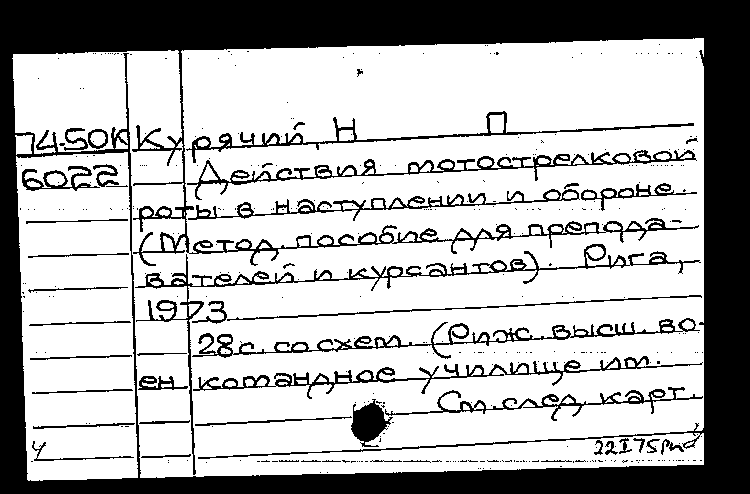 74-50К Курячий, Н П
6022 Действия мотострелковой
роты в наступлении и обороне.
(Метод. пособие для препода-
вателей и курсантов). Рига,
1973
28с. со схем. (Риж. высш. во-
ен командное училище им.
См. след. карт.
4 22 I 75